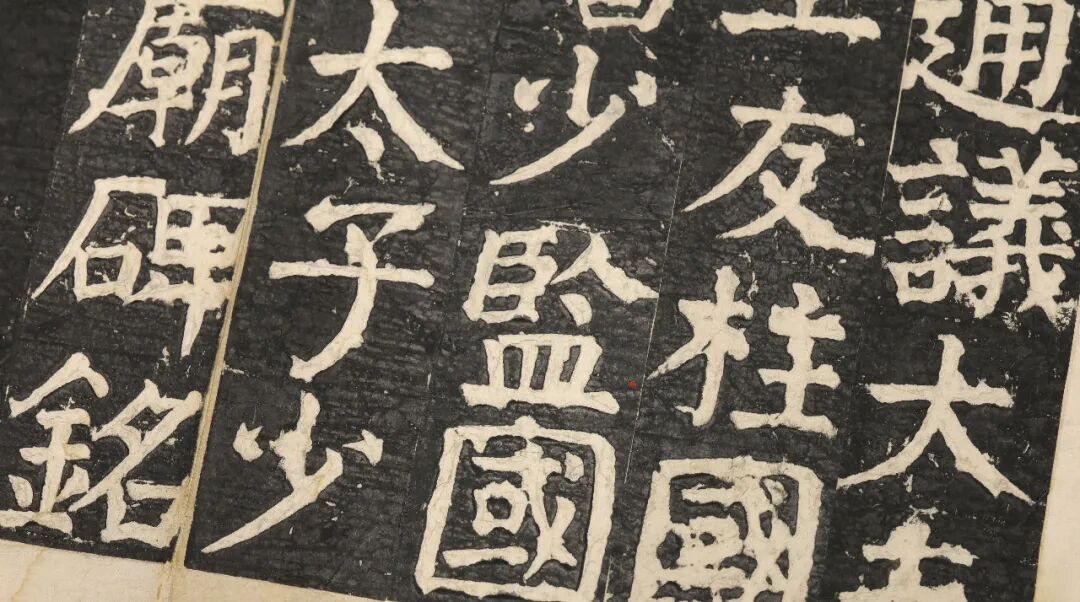 通議大
友柱國
少監國
太子少
廟碑銘